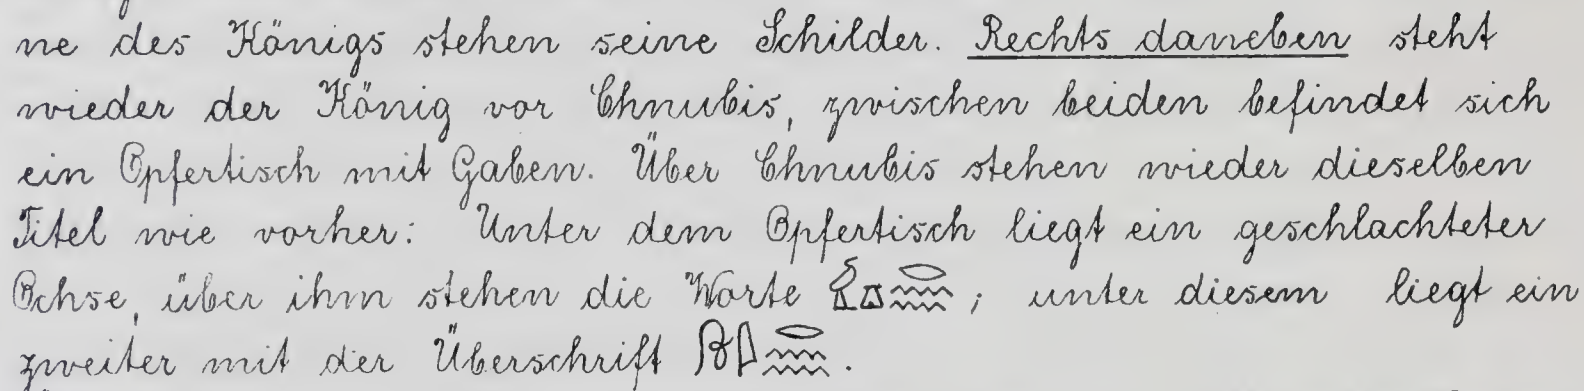 ne des Königs stehen seine Schilder. Rechts daneben steht
wieder der König vor Chnubis, zwischen beiden befindet sich
ein Opfertisch mit Gaben. Über Chnubis stehen wieder dieselben
Titel wie vorher: Unter dem Opfertisch liegt ein geschlachteter
Ochse, über ihm stehen die Worte ; unter diesem liegt ein
zweiter mit der Überschrift .